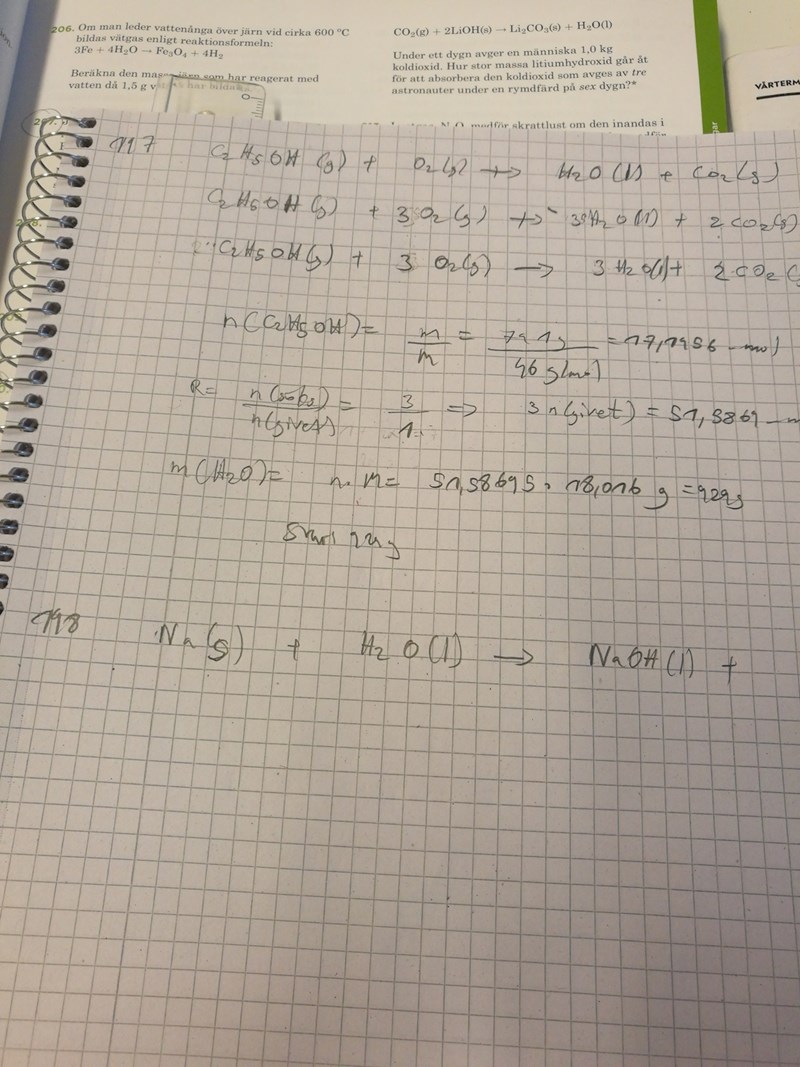 206. Om man leder vattenånga över järn vid cirka 600 °C
bildas vätgas enligt reaktionsformeln:
3Fe + 4H₂O → Fe₃O₄ + 4H₂
Beräkna den massa järn som har reagerat med
vatten då 1,5 g vätgas har bildats.
CO₂(g) + 2LiOH(s) → Li₂CO₃(s) + H₂O(l)
Under ett dygn avger en människa 1,0 kg
koldioxid. Hur stor massa litiumhydroxid går åt
för att absorbera den koldioxid som avges av tre
astronauter under en rymdfärd på sex dygn?*
medför skrattlust om den inandas i
VÄRTERM
197
C₂H₅OH (g) + O₂(g) → H₂O (l) + CO₂(g)
C₂H₅OH (g) + 3 O₂(g) → 3H₂O (l) + 2 CO₂(g)
C₂H₅OH(g) + 3 O₂(g) → 3 H₂O(l) + 2 CO₂(
n(C₂H₅OH) = m/M = 791g/46 g/mol = 17,1956 mol
R = n(sökt)/n(givet) = 3/1 => 3 n(givet) = 51,5869 m
m(H₂O) = n · M = 51,58695 · 18,016 g = 929g
198
Na(s) + H₂O(l) → NaOH(l) +